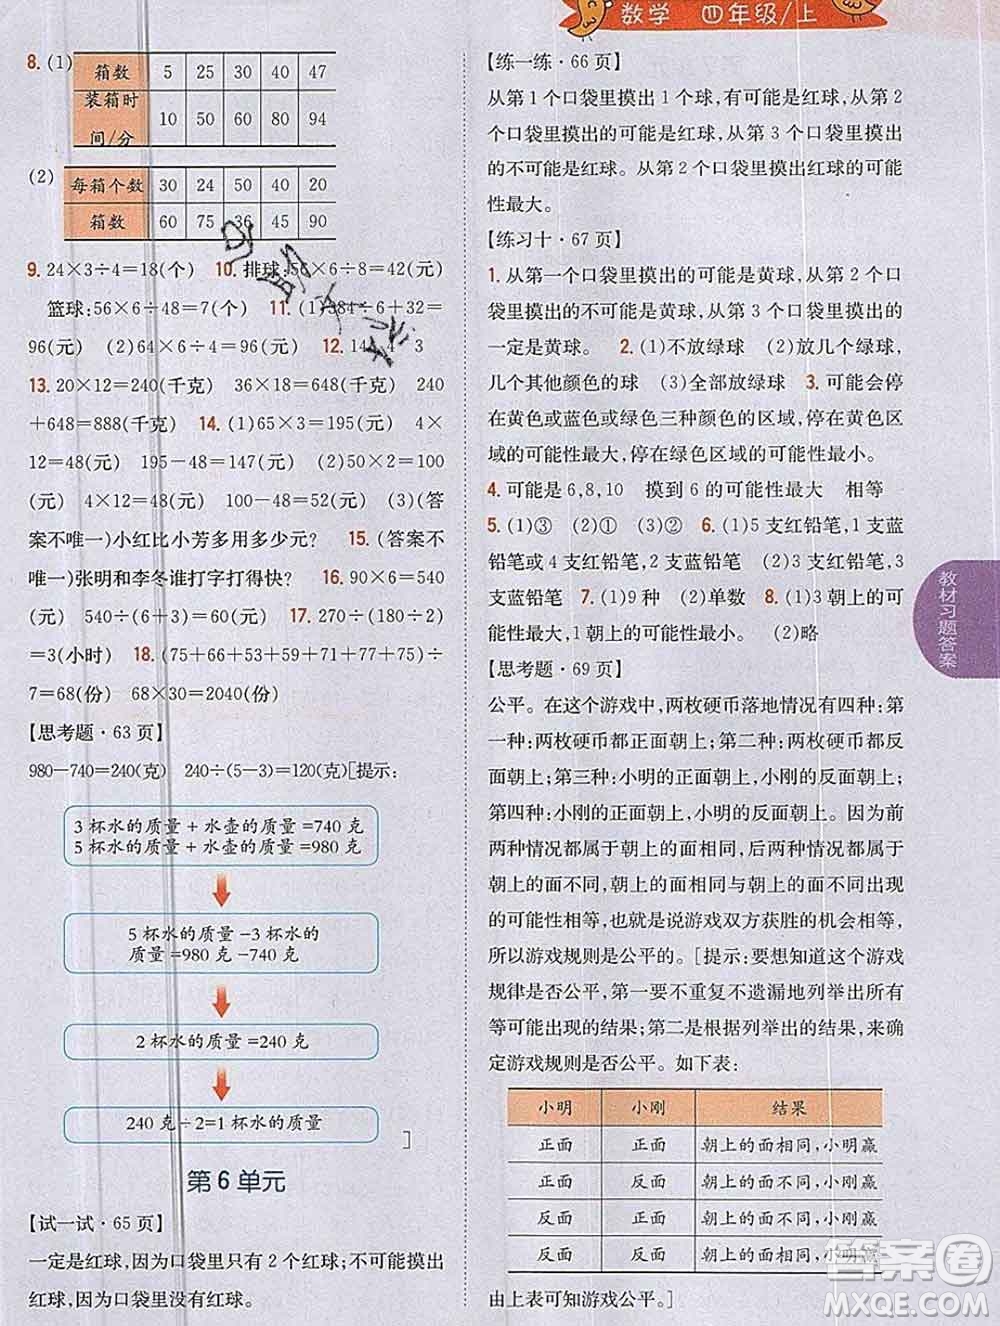 数学 四年级/上
8. (1)
箱数 5 25 30 40 47
装箱时间/分 10 50 60 80 94
(2)
每箱个数 30 24 50 40 20
箱数 60 75 36 45 90
9. 24×3÷4=18(个) 10. 排球:56×6÷8=42(元)
篮球:56×6÷48=7(个) 11. (1)384÷6+32=
96(元) (2)64×6÷4=96(元) 12. 14 4 3
13. 20×12=240(千克) 36×18=648(千克) 240
+648=888(千克) 14. (1)65×3=195(元) 4×
12=48(元) 195-48=147(元) (2)50×2=100
(元) 4×12=48(元) 100-48=52(元) (3)(答
案不唯一)小红比小芳多用多少元? 15. (答案不
唯一)张明和李冬谁打字打得快? 16. 90×6=540
(元) 540÷60=9(元) 17. 270÷(180÷2)
=3(小时) 18. (75+66+66+54+77+77+75)÷
7=68(份) 68×30=2040(份)
【思考题·63页】
980-740=240(克) 240÷(5-3)=120(克)[提示:
3杯水的质量+水壶的质量=740克
5杯水的质量+水壶的质量=980克
5杯水的质量-3杯水的
质量=980克-740克
2杯水的质量=240克
240克÷2=1杯水的质量
]
第6单元
【试一试·65页】
一定是红球,因为口袋里只有2个红球;不可能摸出
红球,因为口袋里没有红球。
【练一练·66页】
从第1个口袋里摸出1个球,有可能是红球,从第2
个口袋里摸出的可能是红球,从第3个口袋里摸出
的不可能是红球。从第2个口袋里摸出红球的可能
性最大。
【练习十·67页】
1. 从第一个口袋里摸出的可能是黄球,从第二个口
袋里摸出的不可能是黄球,从第三个口袋里摸出的
一定是黄球。 2. (1)不放绿球 (2)放几个绿球,
几个其他颜色的球 (3)全部放绿球 3. 可能会停
在黄色或蓝色或绿色三种颜色的区域,停在黄色区
域的可能性最大,停在绿色区域的可能性最小。
4. 可能是6,8,10 摸到6的可能性最大 相等
5. (1)③ (2)① (3)② 6. (1)5支红铅笔,1支蓝
铅笔或4支红铅笔,2支蓝铅笔 (2)3支红铅笔,3
支蓝铅笔 7. (1)9种 (2)单数 8. (1)3朝上的可
能性最大,1朝上的可能性最小。 (2)略
【思考题·69页】
公平。在这个游戏中,两枚硬币落地情况有四种:第
一种:两枚硬币都正面朝上;第二种:两枚硬币都反
面朝上;第三种:小明的正面朝上,小刚的反面朝上;
第四种:小刚的正面朝上,小明的反面朝上。因为前
两种情况都属于朝上的面相同,后两种情况都属于
朝上的面不同,即朝上的面相同与朝上的面不同出现
的可能性相等,也就是说游戏双方获胜的机会相等,
所以游戏规则是公平的。[提示:要想知道这个游戏
规律是否公平,第一要不重复不遗漏地列举出所有
等可能出现的结果;第二是根据列举出的结果,来确
定游戏规则是否公平。如下表:
小明 小刚 结果
正面 正面 朝上的面相同,小明赢
正面 反面 朝上的面不同,小刚赢
反面 正面 朝上的面不同,小刚赢
反面 反面 朝上的面相同,小明赢
由上表可知游戏公平。]
教材习题答案
答案圈
MXQE.COM